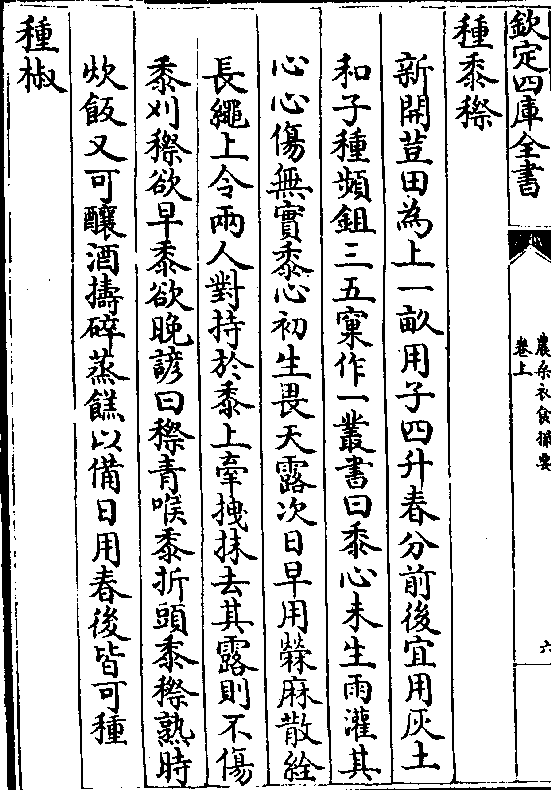 欽定四庫全書
農桑衣食撮要
卷上
六
種黍穄
新開荳田為上一畝用子四升春分前後宜用灰土
和子種頻鉏三五窠作一叢書曰黍心未生雨灌其
心心傷無實黍心初生畏天露次日早用䔛麻散絟
長繩上令兩人對持於黍上牽拽抹去其露則不傷
黍刈穄欲早黍欲晚諺曰穄青喉黍折頭黍穄熟時
炊飯又可釀酒擣碎蒸餻以備日用春後皆可種
種椒